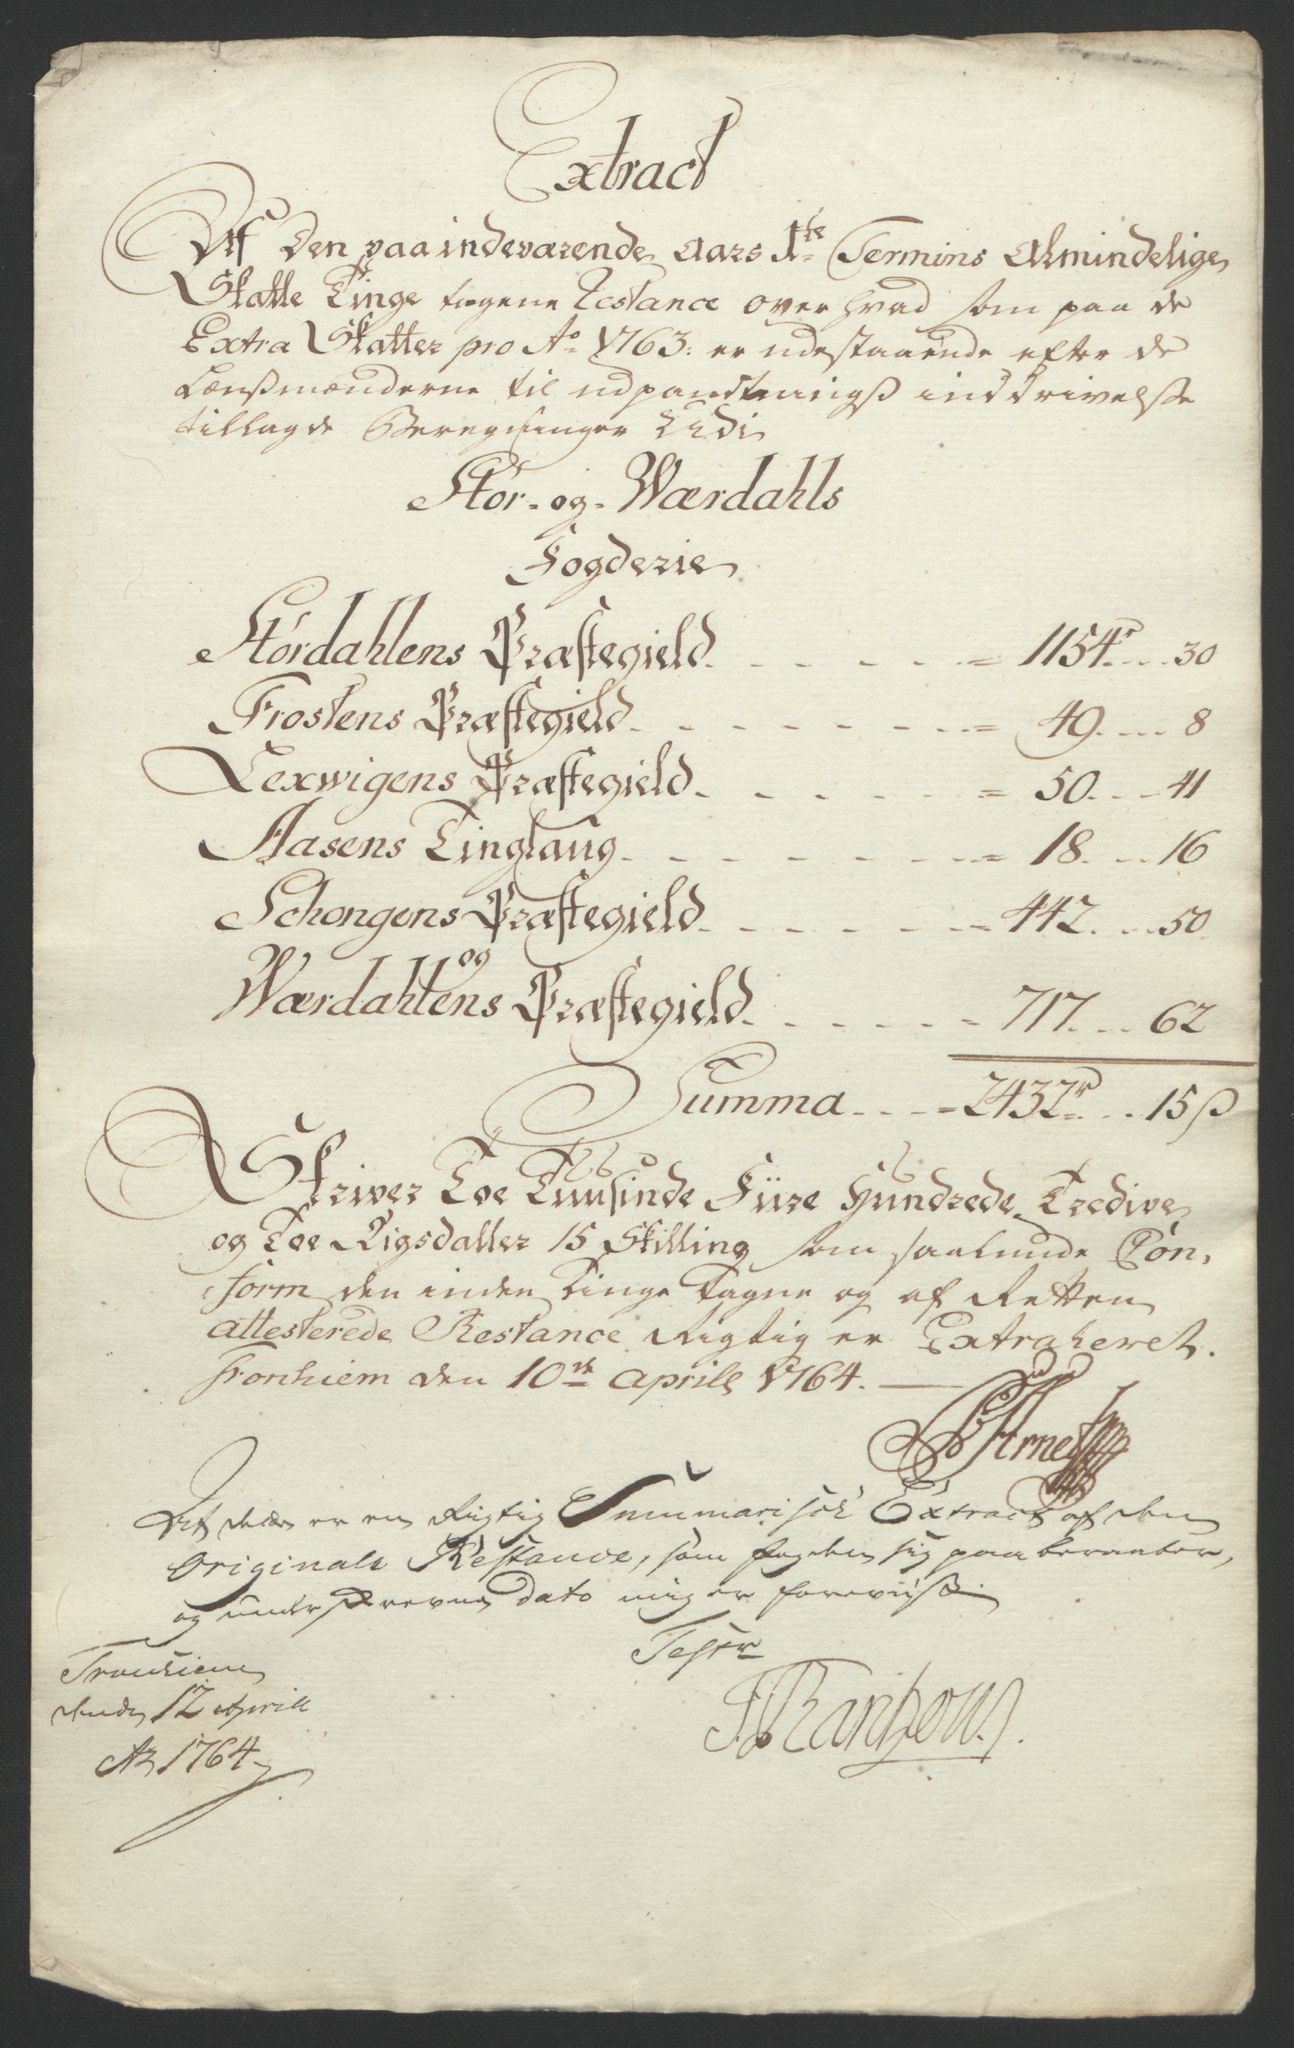 Extract
Af Den paa indeværende aars 1te Termins Almindelige
Skatte Tinge tagene Restance over hvad som paa de
Extra Skatter pro Ao 1763: er udestaaende efter de
Lænßmænderne til udpandtningß inddrivelse
tillagde Beregninger Udi
Stør- og- Wærdahls
Fogderie
Størdahlens Præstegield. - - - - = 1154r... 30
Frostens Præstegield. - - - - = 49.... 8
Lexwigens Præstegield. - - - - = 50.... 41
Aasens Tinglaug. - - - - = 18.... 16
Schongens Præstegield. - - - - = 442.... 50
og
Wærdahlens Præstegield. - - - - = 717.... 62
Summa. - - = 2432r... 15 ß
Skriver Toe Tuusinde Fiire Hundrede Tredive
og Toe Rigsdaller 15 Skilling som saalunde Con,
form den inden Tinge Tagne og af Retten
attesterede Restance Rigtig er Extraheret.
Tronhiem den 10de Aprill 1764. —
Arnet
At dette er en Rigtig Summarisk Extract af den
Originale Restance, som fogden sig paaberaaber,
og underskrevne Dato mig er foreviist
Tester
Tronhiem
dend 12 Aprill
Ao 1764
Rantzow.